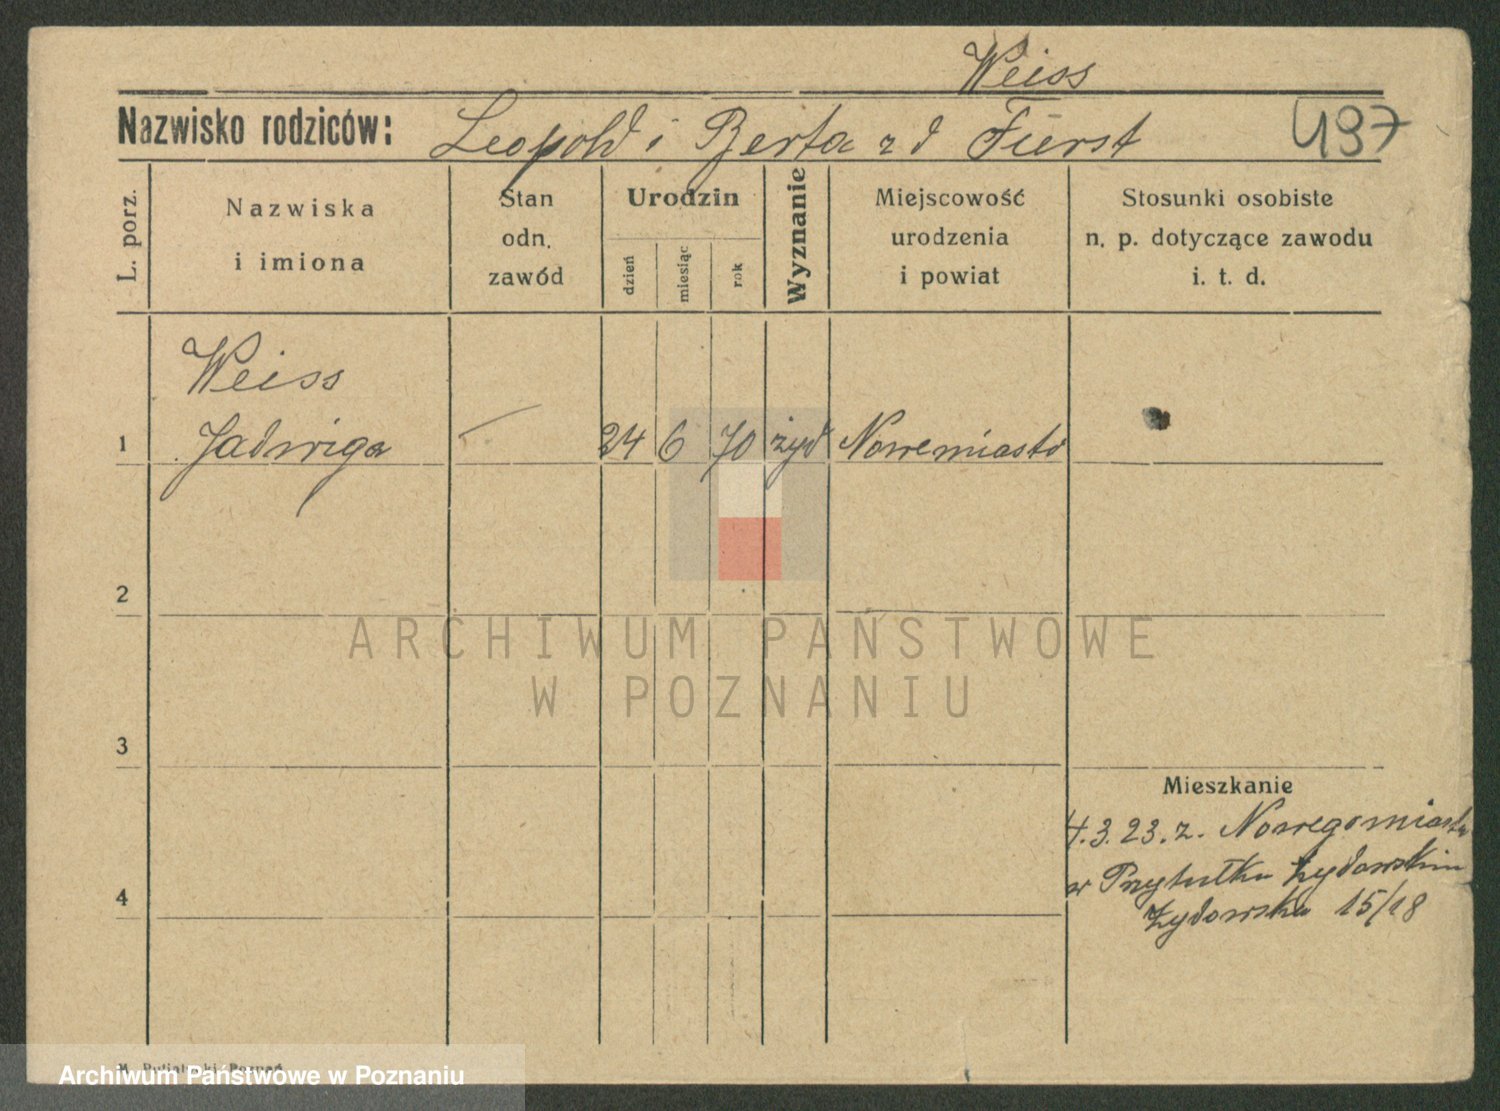 Weiss
Nazwisko rodziców: Leopold i Berta zd Fürst
497
L. porz.
Nazwiska
i imiona
Stan
odn.
zawód
Urodzin
dzień
miesiąc
rok
Wyznanie
Miejscowość
urodzenia
i powiat
Stosunki osobiste
n. p. dotyczące zawodu
i. t. d.
Weiss
1 Jadwiga — 24 6 70 żyd Nowemiasto
2
ARCHIWUM PAŃSTWOWE
W POZNANIU
3
Mieszkanie
4.3.23. z. Nowegomiasta
w Przytułku żydowskim
4
Żydowska 15/18
Poznań
Archiwum Państwowe w Poznaniu